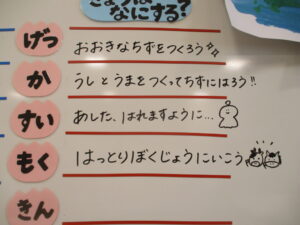 なにする?
げつ
おおきなちずをつくろう
か
うしとうまをつくってちずにはろう!!
すい
あした、はれますように…
もく
はっとりぼくじょうにいこう
きん